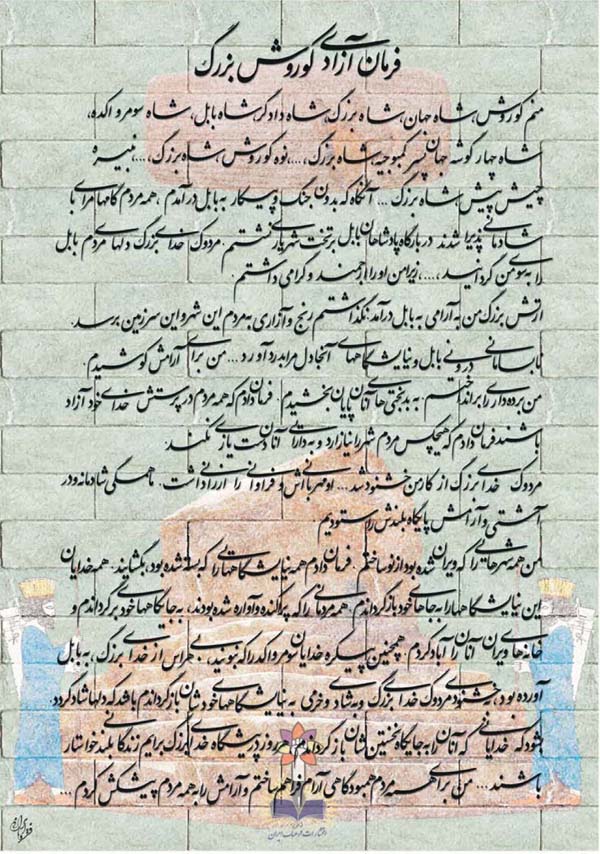 فرمان آزادی کوروش بزرگ
منم کوروش، شاه جهان، شاه بزرگ، شاه دادگر، شاه بابل، شاه سومر و اکد،
شاه چهار گوشه جهان، پسر کمبوجیه، شاه بزرگ، ...، نوه کوروش، شاه بزرگ، ...، نبیره
چیش پیش، شاه بزرگ ... آنگاه که بدون جنگ و پیکار به بابل در آمدم، همه مردم گامهای مرا با
شادمانی پذیرا شدند در بارگاه پادشاهان بابل بر تخت شهریاری نشستم. مردوک خدای بزرگ دلهای مردم بابل
را به سوی من گردانید، ...، زیرا من او را ارجمند و گرامی داشتم.
ارتش بزرگ من به آرامی به بابل درآمد. نگذاشتم رنج و آزاری به مردم این شهر و این سرزمین برسد.
نابسامانی درونی بابل و نیایشگاههای آنجا دل مرا بدرد آورد ... من برای آرامش کوشیدم.
من برده داری را برانداختم. به بدبختی های آنان پایان بخشیدم. فرمان دادم که همه مردم در پرستش خدای خود آزاد
باشند فرمان دادم که هیچکس مردم شهر را نیازارد و به دارایی آنان دست یازی نکند.
مردوک خدای بزرگ از کار من خشنود شد ... او مهربانی اش و فراوانی را ارزانی داشت. ما همگی شادمانه و در
آشتی و آرامش پایگاه بلندش را ستودیم
من همه شهرهایی را که ویران شده بود از نو ساختم. فرمان دادم همه نیایشگاههایی را که بسته شده بود، بگشایند. همه خدایان
این نیایشگاهها را به جاهای خود بازگرداندم. همه مردمانی را که پراکنده و آواره شده بودند، به جایگاههای خود برگرداندم و
خانه های ویران آنان را آباد کردم. همچنین پیکره خدایان سومر و اکد را که نبونید، بی هراس از خدای بزرگ، به بابل
آورده بود، به خشنودی مردوک خدای بزرگ و به شادی و خرمی به نیایشگاههای خودشان بازگرداندم باشد که دلها شاد گردد
بشود که خدایانی که آنان را به جایگاه نخستین شان بازگرداندم، هر روز در پیشگاه خدای بزرگ برایم زندگانی بلند خواستار
باشند ... من برای همه مردم همبودگاهی آرام فراهم ساختم و آرامش را به همه مردم پیشکش کردم ...
انتشارات فرهنگ ایران